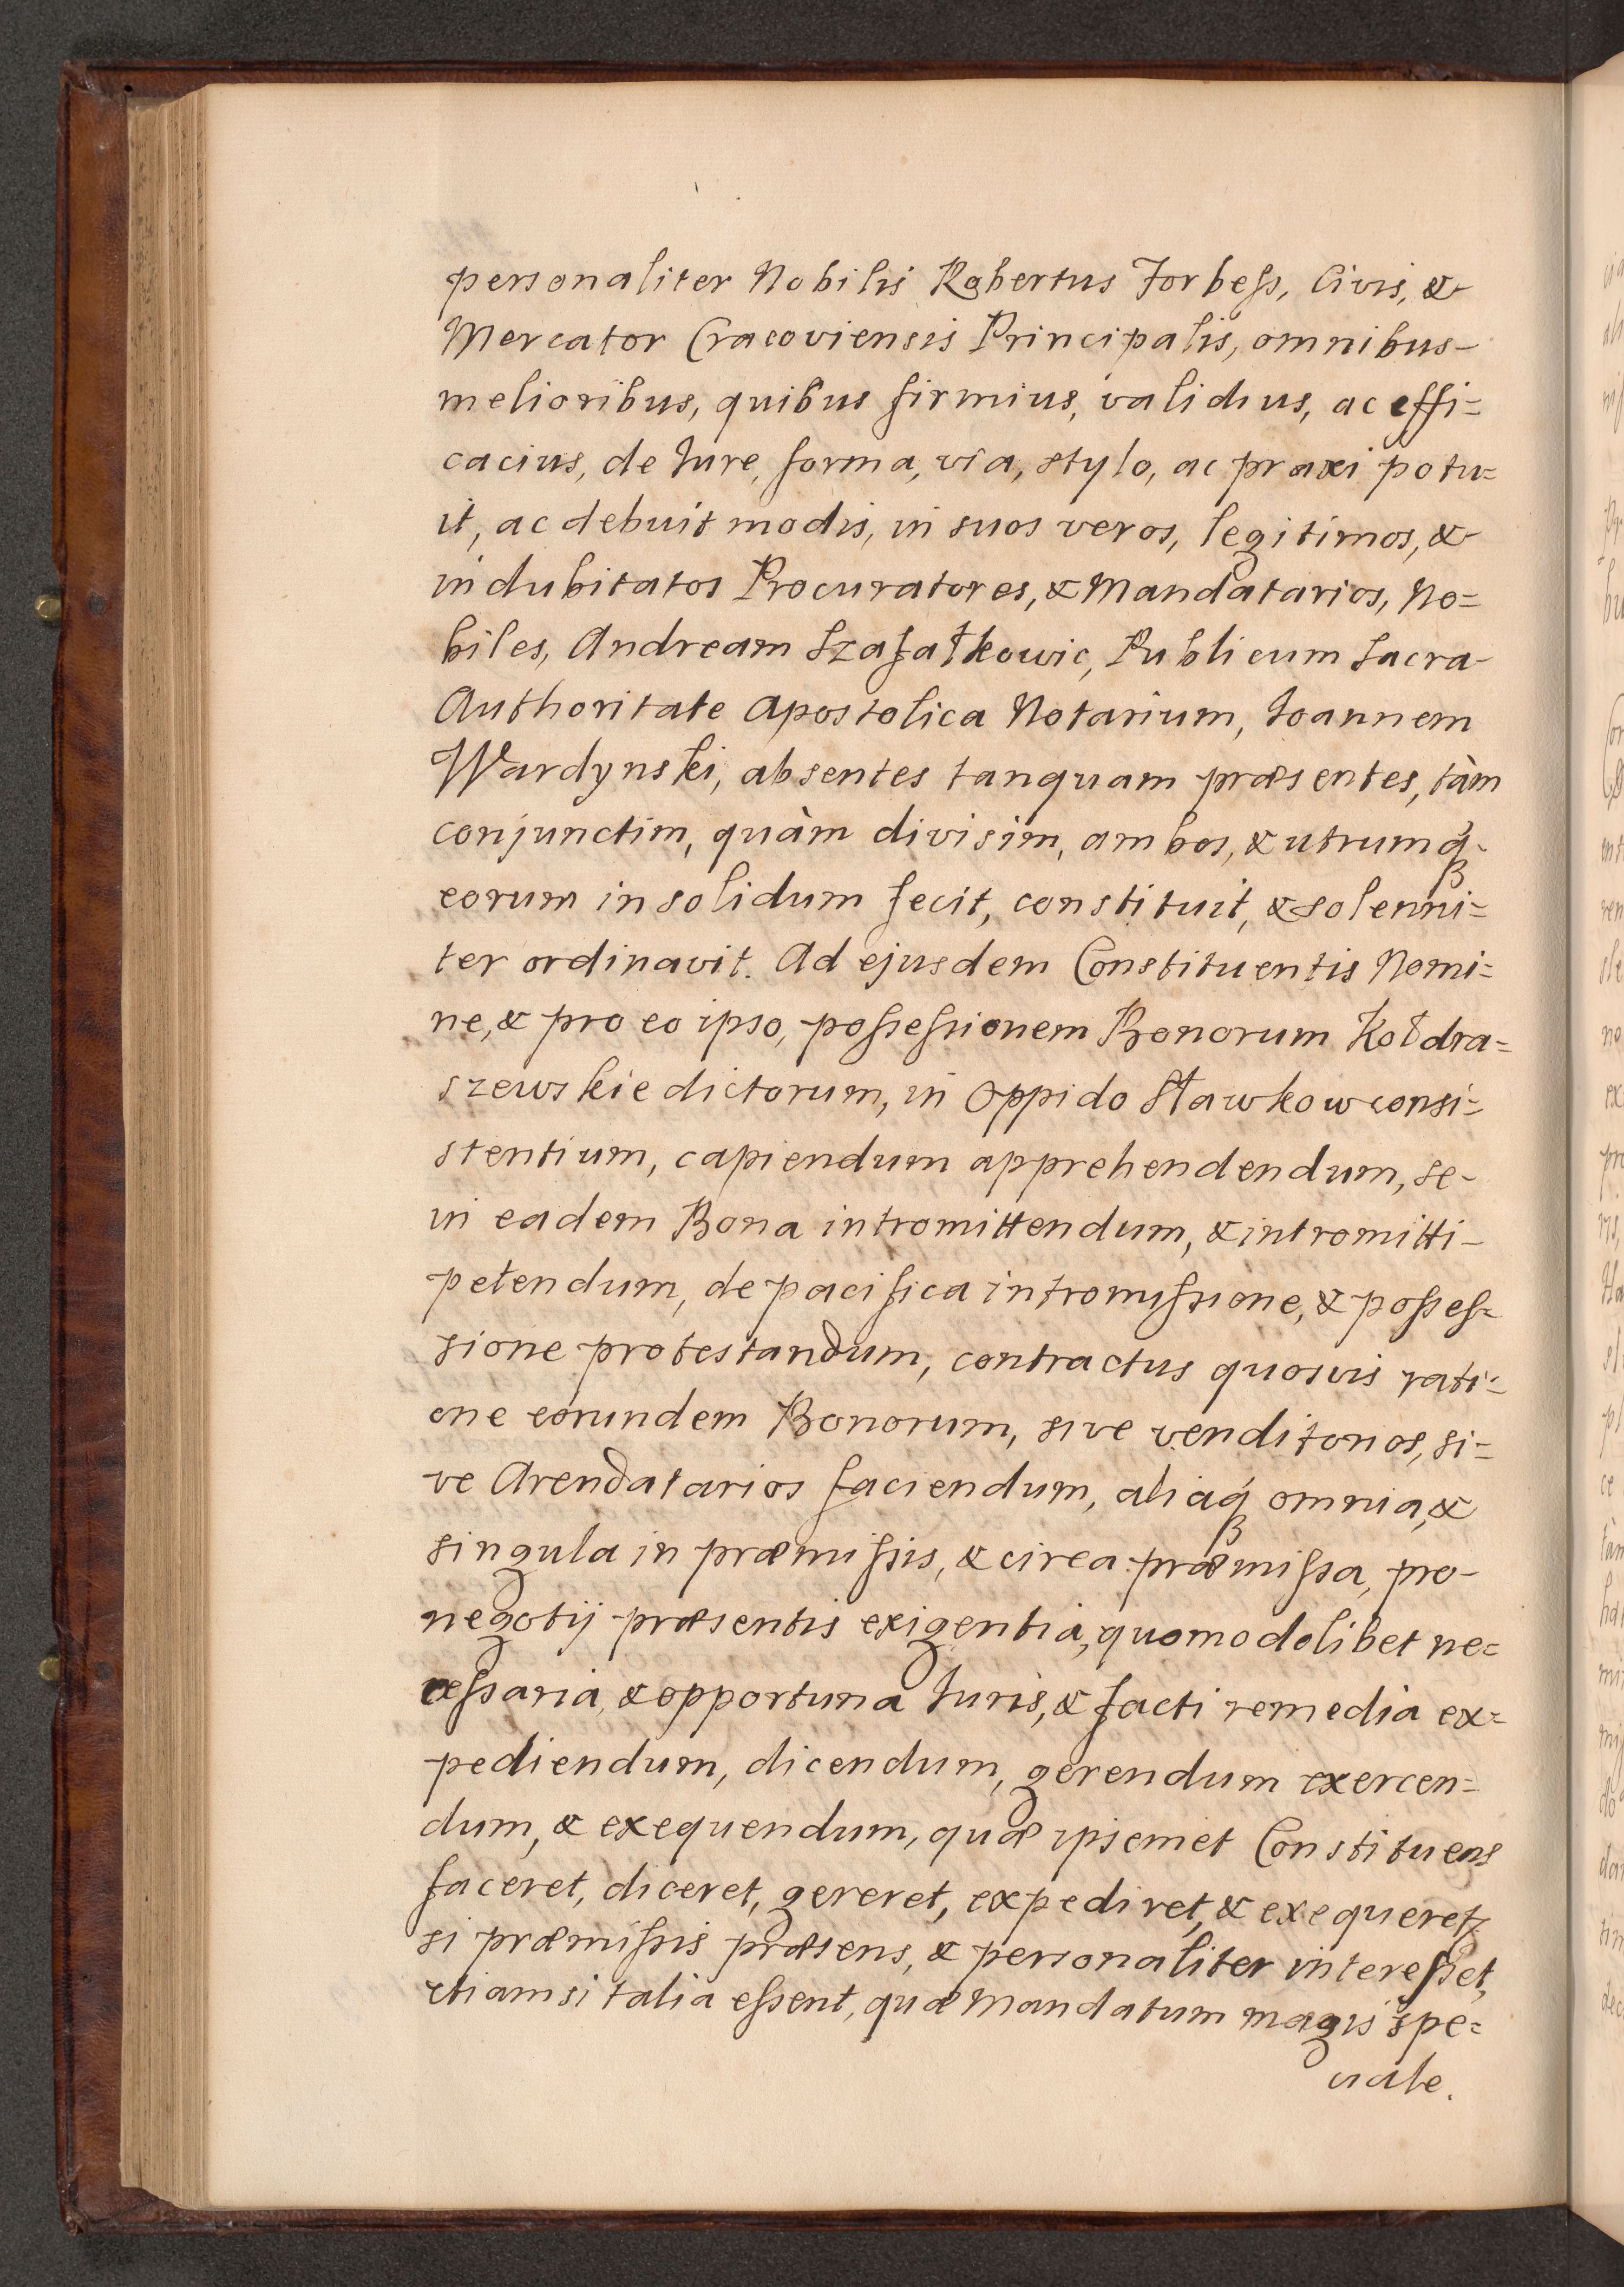 personaliter Nobilis Robertus Forbeſs, Civis, &
Mercator Cracoviensis Principalis, omnibus-
melioribus, quibus firmius, validius, ac effi=
cacius, de Jure, forma, via, stylo, ac praxi potu=
it, ac debuit modis, in suos veros, legitimos, &
indubitatos Procuratores, & Mandatarios, No=
biles, Andream Szafałkowic, Publicum Sacra
Authoritate Apostolica Notarium, Joannem
Wardynski, absentes tanquam præsentes, tàm
conjunctim, quàm divisim, ambos, & utrumq́
eorum in solidum fecit, constituit, & solenni=
ter ordinavit. Ad ejusdem Constituentis Nomi=
ne, & pro eo ipso, poſseſsionem Bonorum Kołdra=
szewskie dictorum, in Oppido Sławkow consi=
stentium, capiendum apprehendendum, se-
in eadem Bona intromittendum, & intromitti-
petendum, de pacifica intromiſsione, & poſseſ=
sione protestandum, contractus quosvis rati=
one eorundem Bonorum, sive venditorios, si=
ve Arendatarios faciendum, aliaq́ omnia, &
singula in præmiſsis, & circa præmiſsa, pro-
negotij præsentis exigentia, quomodolibet ne=
ceſsaria, & opportuna Juris, & facti remedia ex=
pediendum, dicendum, gerendum exercen=
dum, & exequendum, quæ ipsemet Constituens
faceret, diceret, gereret, expediret, & exequeret,
si præmiſsis præsens, & personaliter intereſset,
etiamsi talia eſsent, quæ Mandatum magis spe=
ciale.